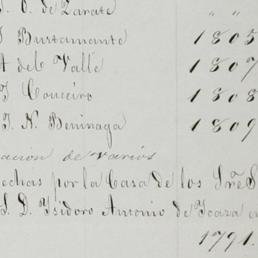 J. O. de Zarate " "
J Bustamante 1805
A de L Valle 1807
J Couceiro 1808
J. N. Beninaga 1809
acion de varios
echas por la Casa de los Sres
S. D. Isidoro Antonio de Icaza
1791.